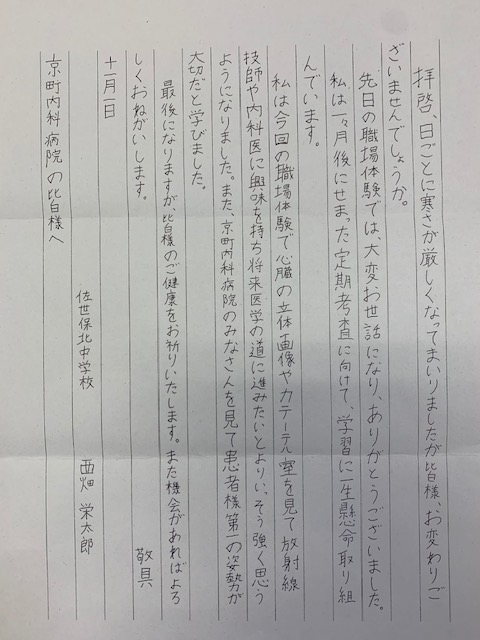 拝啓、日ごとに寒さが厳しくなってまいりましたが皆様、お変わりご
ざいませんでしょうか。
先日の職場体験では、大変お世話になり、ありがとうございました。
私は一ヶ月後にせまった定期考査に向けて、学習に一生懸命取り組
んでいます。
私は今回の職場体験で心臓の立体画像やカテーテル室を見て放射線
技師や内科医に興味を持ち将来医学の道に進みたいとよりいっそう強く思う
ようになりました。また、京町内科病院のみなさんを見て患者様第一の姿勢が
大切だと学びました。
最後になりますが、皆様のご健康をお祈りいたします。また機会があればよろ
しくおねがいします。
敬具
十一月一日
佐世保北中学校 西畑 栄太郎
京町内科病院の皆様へ